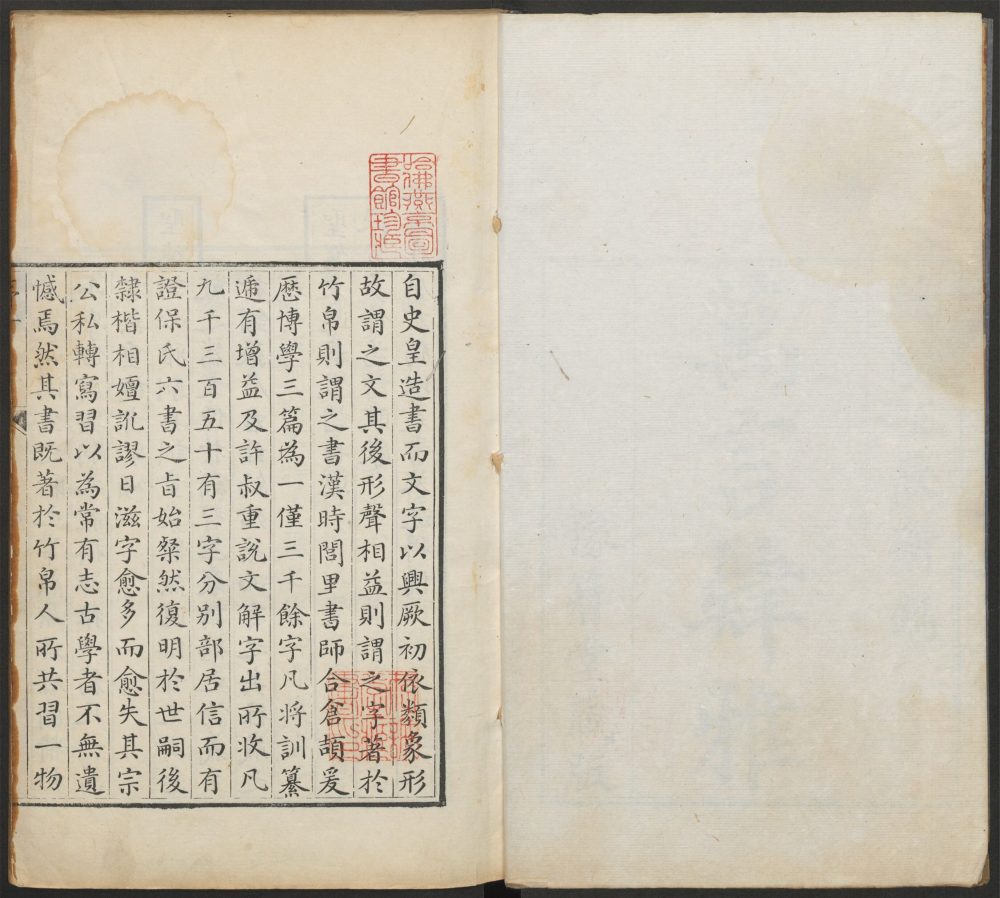 哈佛燕京圖
書館珍藏
自史皇造書而文字以興厥初依類象形
故謂之文其後形聲相益則謂之字著於
竹帛則謂之書漢時閭里書師合倉頡爰
歷博學三篇為一僅三千餘字凡將訓纂
遞有增益及許叔重說文解字出所收凡
九千三百五十有三字分別部居信而有
證保氏六書之旨始粲然復明於世嗣後
隸楷相嬗訛謬日滋字愈多而愈失其宗
公私轉寫習以為常有志古學者不無遺
憾焉然其書既著於竹帛人所共習一物